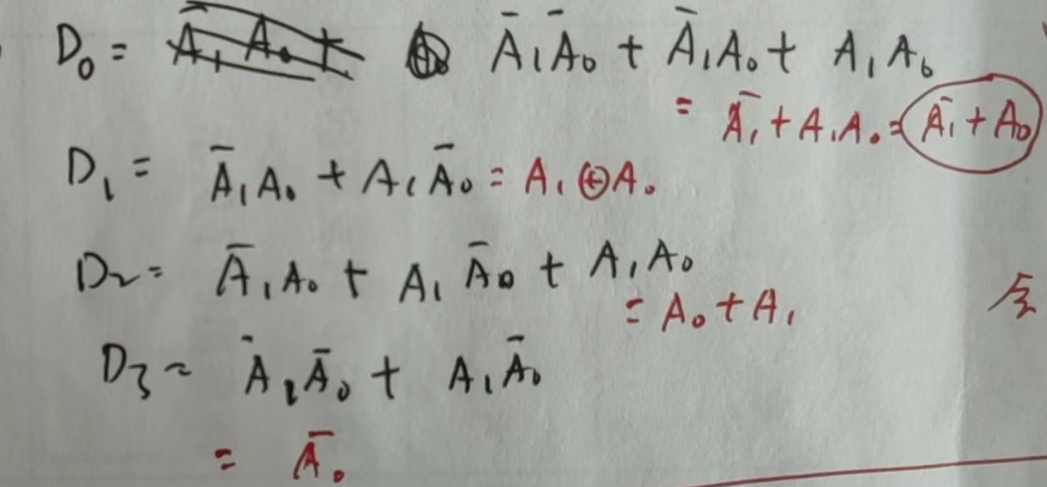 D₀ = Ā₁Ā₀ + Ā₁A₀ + A₁A₀
= Ā₁ + A₁A₀ = Ā₁ + A₀
D₁ = Ā₁A₀ + A₁Ā₀ = A₁ ⊕ A₀
D₂ = Ā₁A₀ + A₁Ā₀ + A₁A₀
= A₀ + A₁
D₃ = Ā₁Ā₀ + A₁Ā₀
= Ā₀